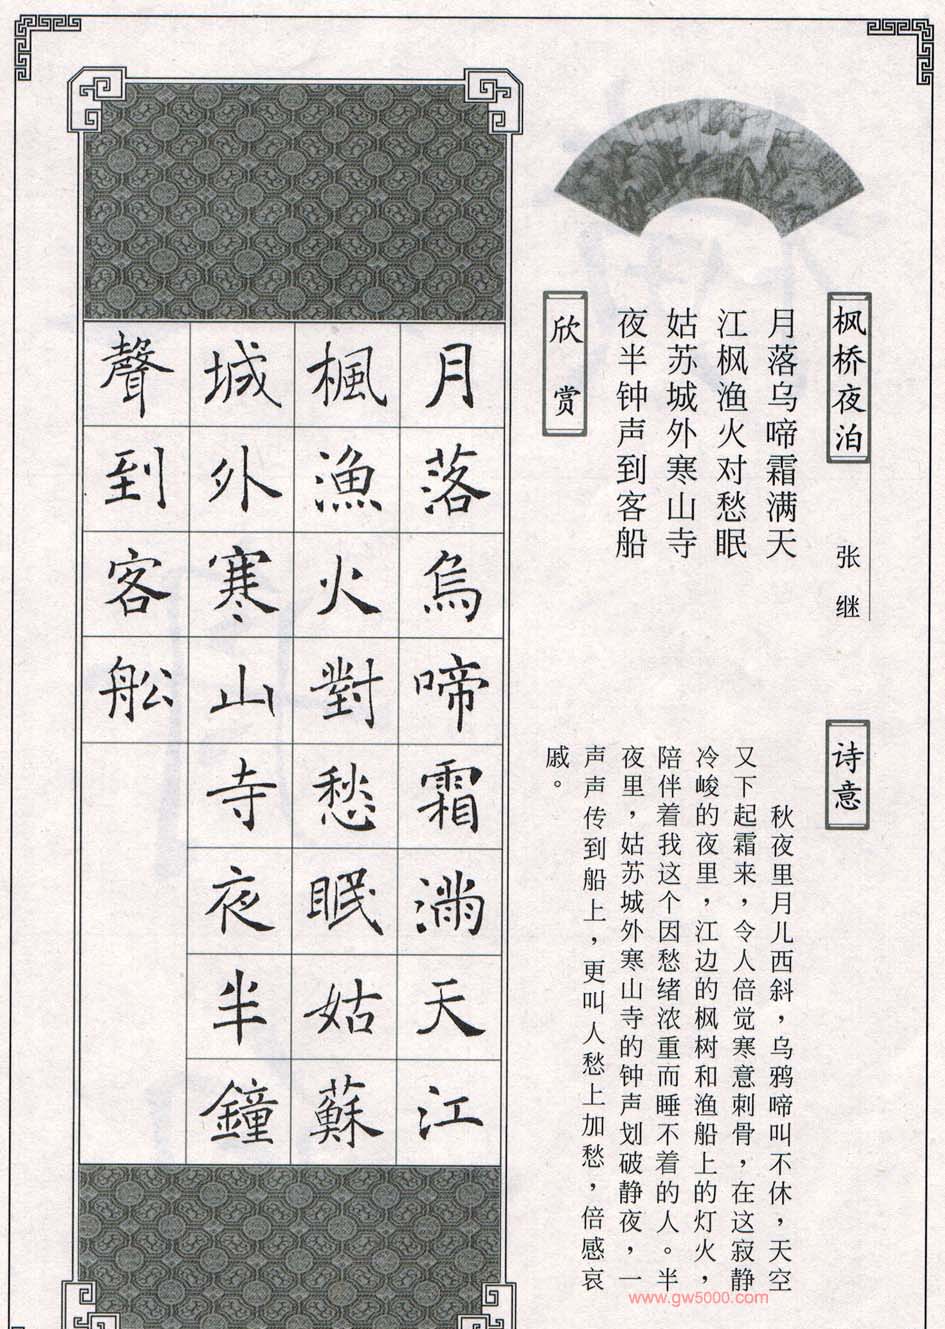 枫桥夜泊
张继
月落乌啼霜满天
江枫渔火对愁眠
姑苏城外寒山寺
夜半钟声到客船
欣赏
诗意
秋夜里月儿西斜，乌鸦啼叫不休，天空
又下起霜来，令人倍觉寒意刺骨，在这寂静
冷峻的夜里，江边的枫树和渔船上的灯火，
陪伴着我这个因愁绪浓重而睡不着的人。半
夜里，姑苏城外寒山寺的钟声划破静夜，一
声声传到船上，更叫人愁上加愁，倍感哀
戚。
月落烏啼霜滿天江
楓漁火對愁眠姑蘇
城外寒山寺夜半鐘
聲到客舩
www.gw5000.com